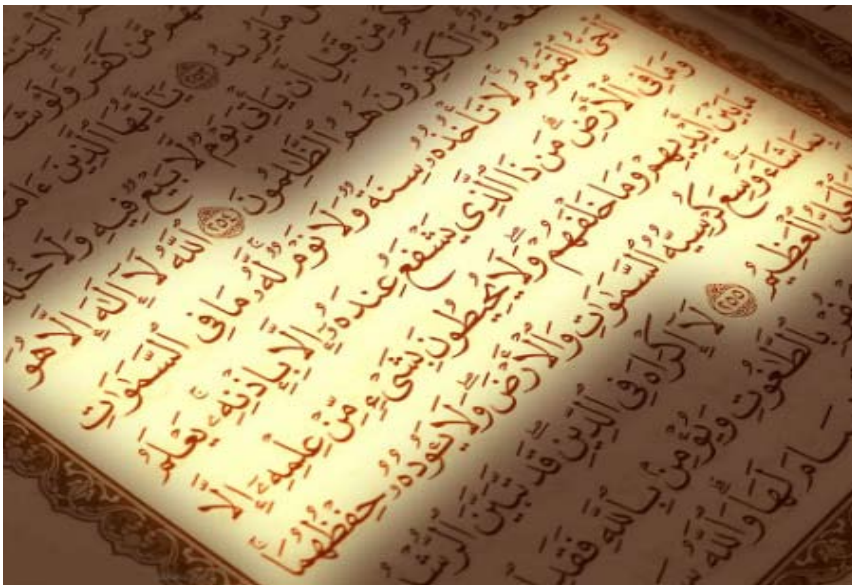 ٱلْبَيِّنَـٰتُ
هُم مَّن كَفَرَ وَلَوْ شَا
مَا يُرِيدُ ﴿٢٥٣﴾ يَـٰٓأَيُّهَا ٱلَّذِينَ ءَامَ
كُم مِّن قَبْلِ أَن يَأْتِىَ يَوْمٌ لَّا بَيْعٌ فِيهِ وَلَا خُلَّة
عَةٌ وَٱلْكَـٰفِرُونَ هُمُ ٱلظَّـٰلِمُونَ ﴿٢٥٤﴾ ٱللَّهُ لَآ إِلَـٰهَ إِلَّا هُوَ
ٱلْحَىُّ ٱلْقَيُّومُ لَا تَأْخُذُهُۥ سِنَةٌ وَلَا نَوْمٌ لَّهُۥ مَا فِى ٱلسَّمَـٰوَٰتِ
وَمَا فِى ٱلْأَرْضِ مَن ذَا ٱلَّذِى يَشْفَعُ عِندَهُۥٓ إِلَّا بِإِذْنِهِۦ يَعْلَمُ
مَا بَيْنَ أَيْدِيهِمْ وَمَا خَلْفَهُمْ وَلَا يُحِيطُونَ بِشَىْءٍ مِّنْ عِلْمِهِۦٓ إِلَّا
بِمَا شَآءَ وَسِعَ كُرْسِيُّهُ ٱلسَّمَـٰوَٰتِ وَٱلْأَرْضَ وَلَا يَـُٔودُهُۥ حِفْظُهُمَا
ٱلْعَلِىُّ ٱلْعَظِيمُ ﴿٢٥٥﴾ لَآ إِكْرَاهَ فِى ٱلدِّينِ قَد تَّبَيَّنَ ٱلرُّشْدُ
فُرْ بِٱلطَّـٰغُوتِ وَيُؤْمِنۢ بِٱللَّهِ فَقَدِ
صَامَ لَهَا وَٱللَّهُ سَ